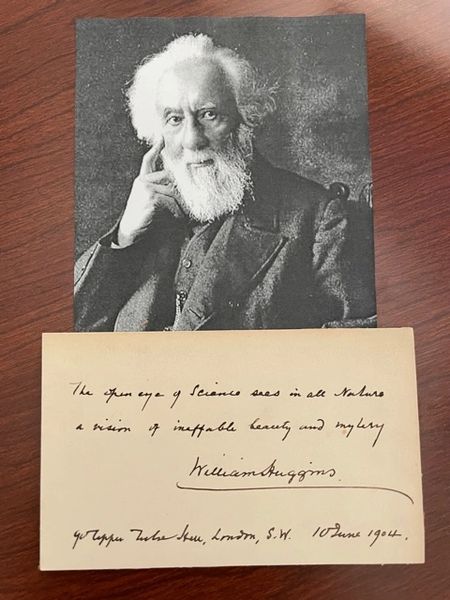 The open eye of Science sees in all Nature
a vision of ineffable beauty and mystery
William Huggins.
90 Upper Tulse Hill, London, S.W. 10 June 1904.